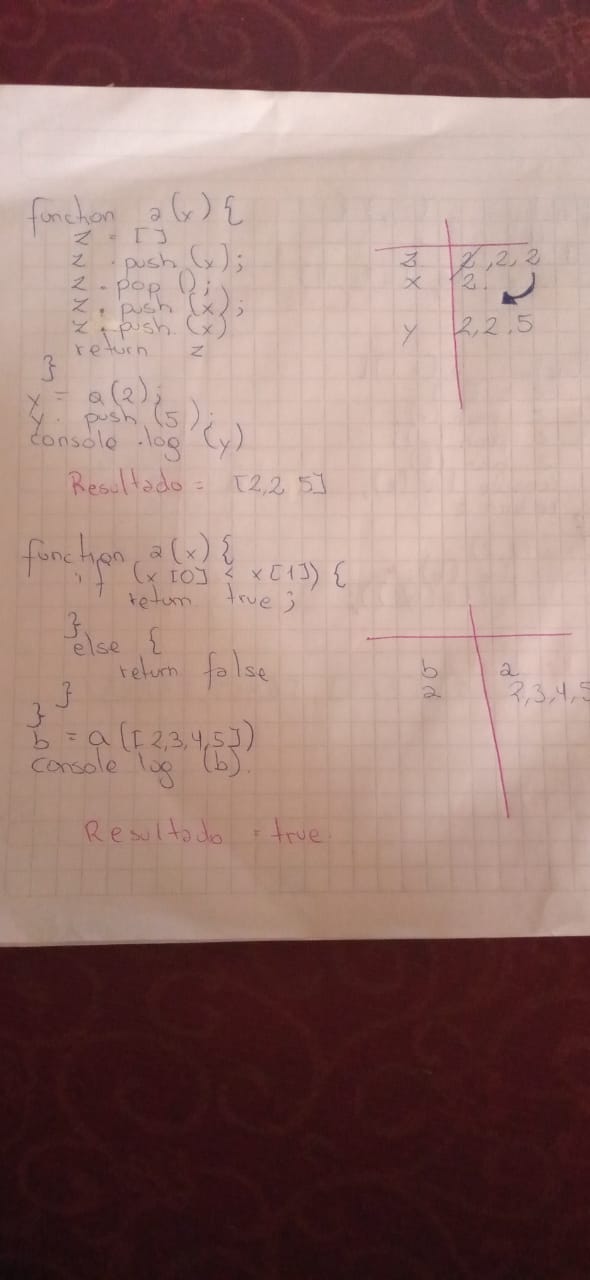 function a(x) {
z = []
z . push (x);
z . pop ();
z . push (x);
z . push (x)
return z
}
y = a(2);
y . push (5);
console .log (y)
Resultado = [2,2 5]
z 2,2,2
x 2.
y 2,2.5
function a(x) {
if (x [0] < x [1]) {
return true ;
}
else {
return false
}
}
b = a ([2,3,4,5])
console log (b).
Resultado = true.
b a
a 2,3,4,5